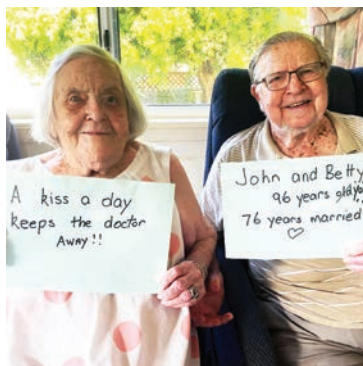 A kiss a day
keeps the doctor
AWAY!!
John and Betty
96 years old
76 years married
♡